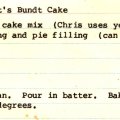 t's Bundt Cake
cake mix (Chris uses ye
ng and pie filling (can
an. Pour in batter. Bak
degrees.